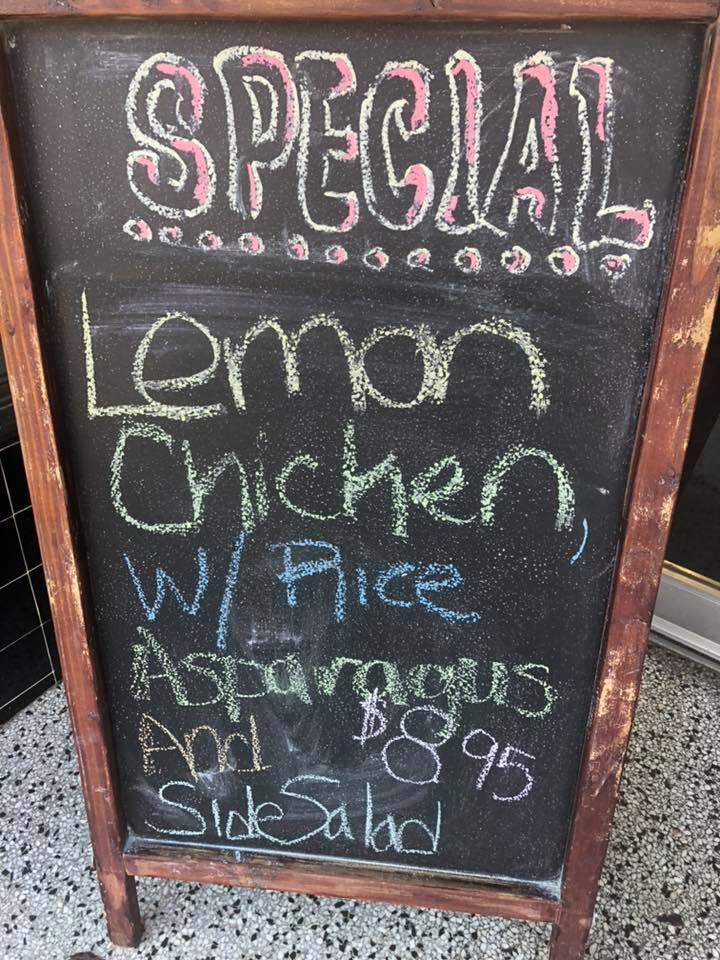 SPECIAL
Lemon
Chicken,
W/ Rice
Asparagus
And $8.95
Side Salad